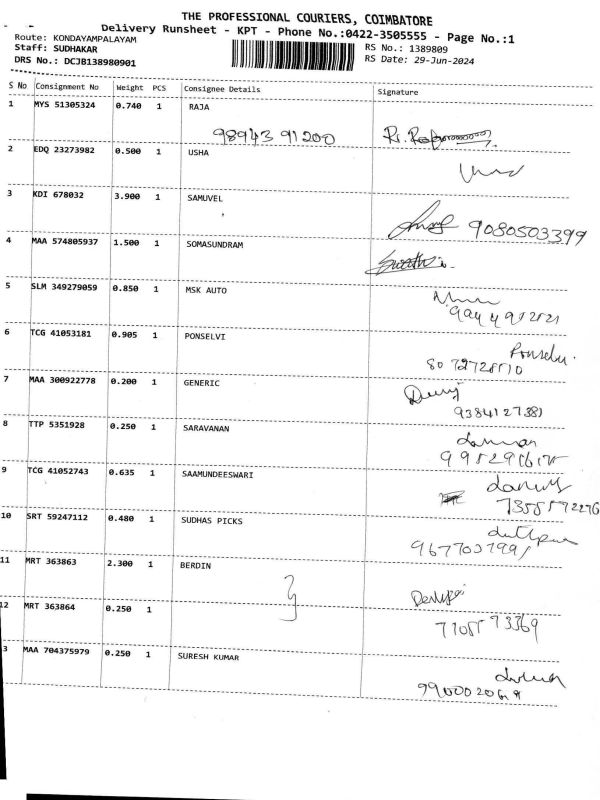 THE PROFESSIONAL COURIERS, COIMBATORE
Delivery Runsheet - KPT - Phone No.:0422-3505555 - Page No.:1
Route: KONDAYAMPALAYAM RS No.: 1389809
Staff: SUDHAKAR RS Date: 29-Jun-2024
DRS No.: DCJB138980901
S No Consignment No Weight PCS Consignee Details Signature
1 MYS 51305324 0.740 1 RAJA
98943 91200
2 EDQ 23273982 0.500 1 USHA
3 KDI 678032 3.900 1 SAMUVEL
9080503399
4 MAA 574805937 1.500 1 SOMASUNDRAM
5 SLM 349279059 0.850 1 MSK AUTO
6 TCG 41053181 0.905 1 PONSELVI
Ponselvi
7 MAA 300922778 0.200 1 GENERIC
8 TTP 5351928 0.250 1 SARAVANAN
9 TCG 41052743 0.635 1 SAAMUNDEESWARI
10 SRT 59247112 0.480 1 SUDHAS PICKS
11 MRT 363863 2.300 1 BERDIN
12 MRT 363864 0.250 1
3 MAA 704375979 0.250 1 SURESH KUMAR